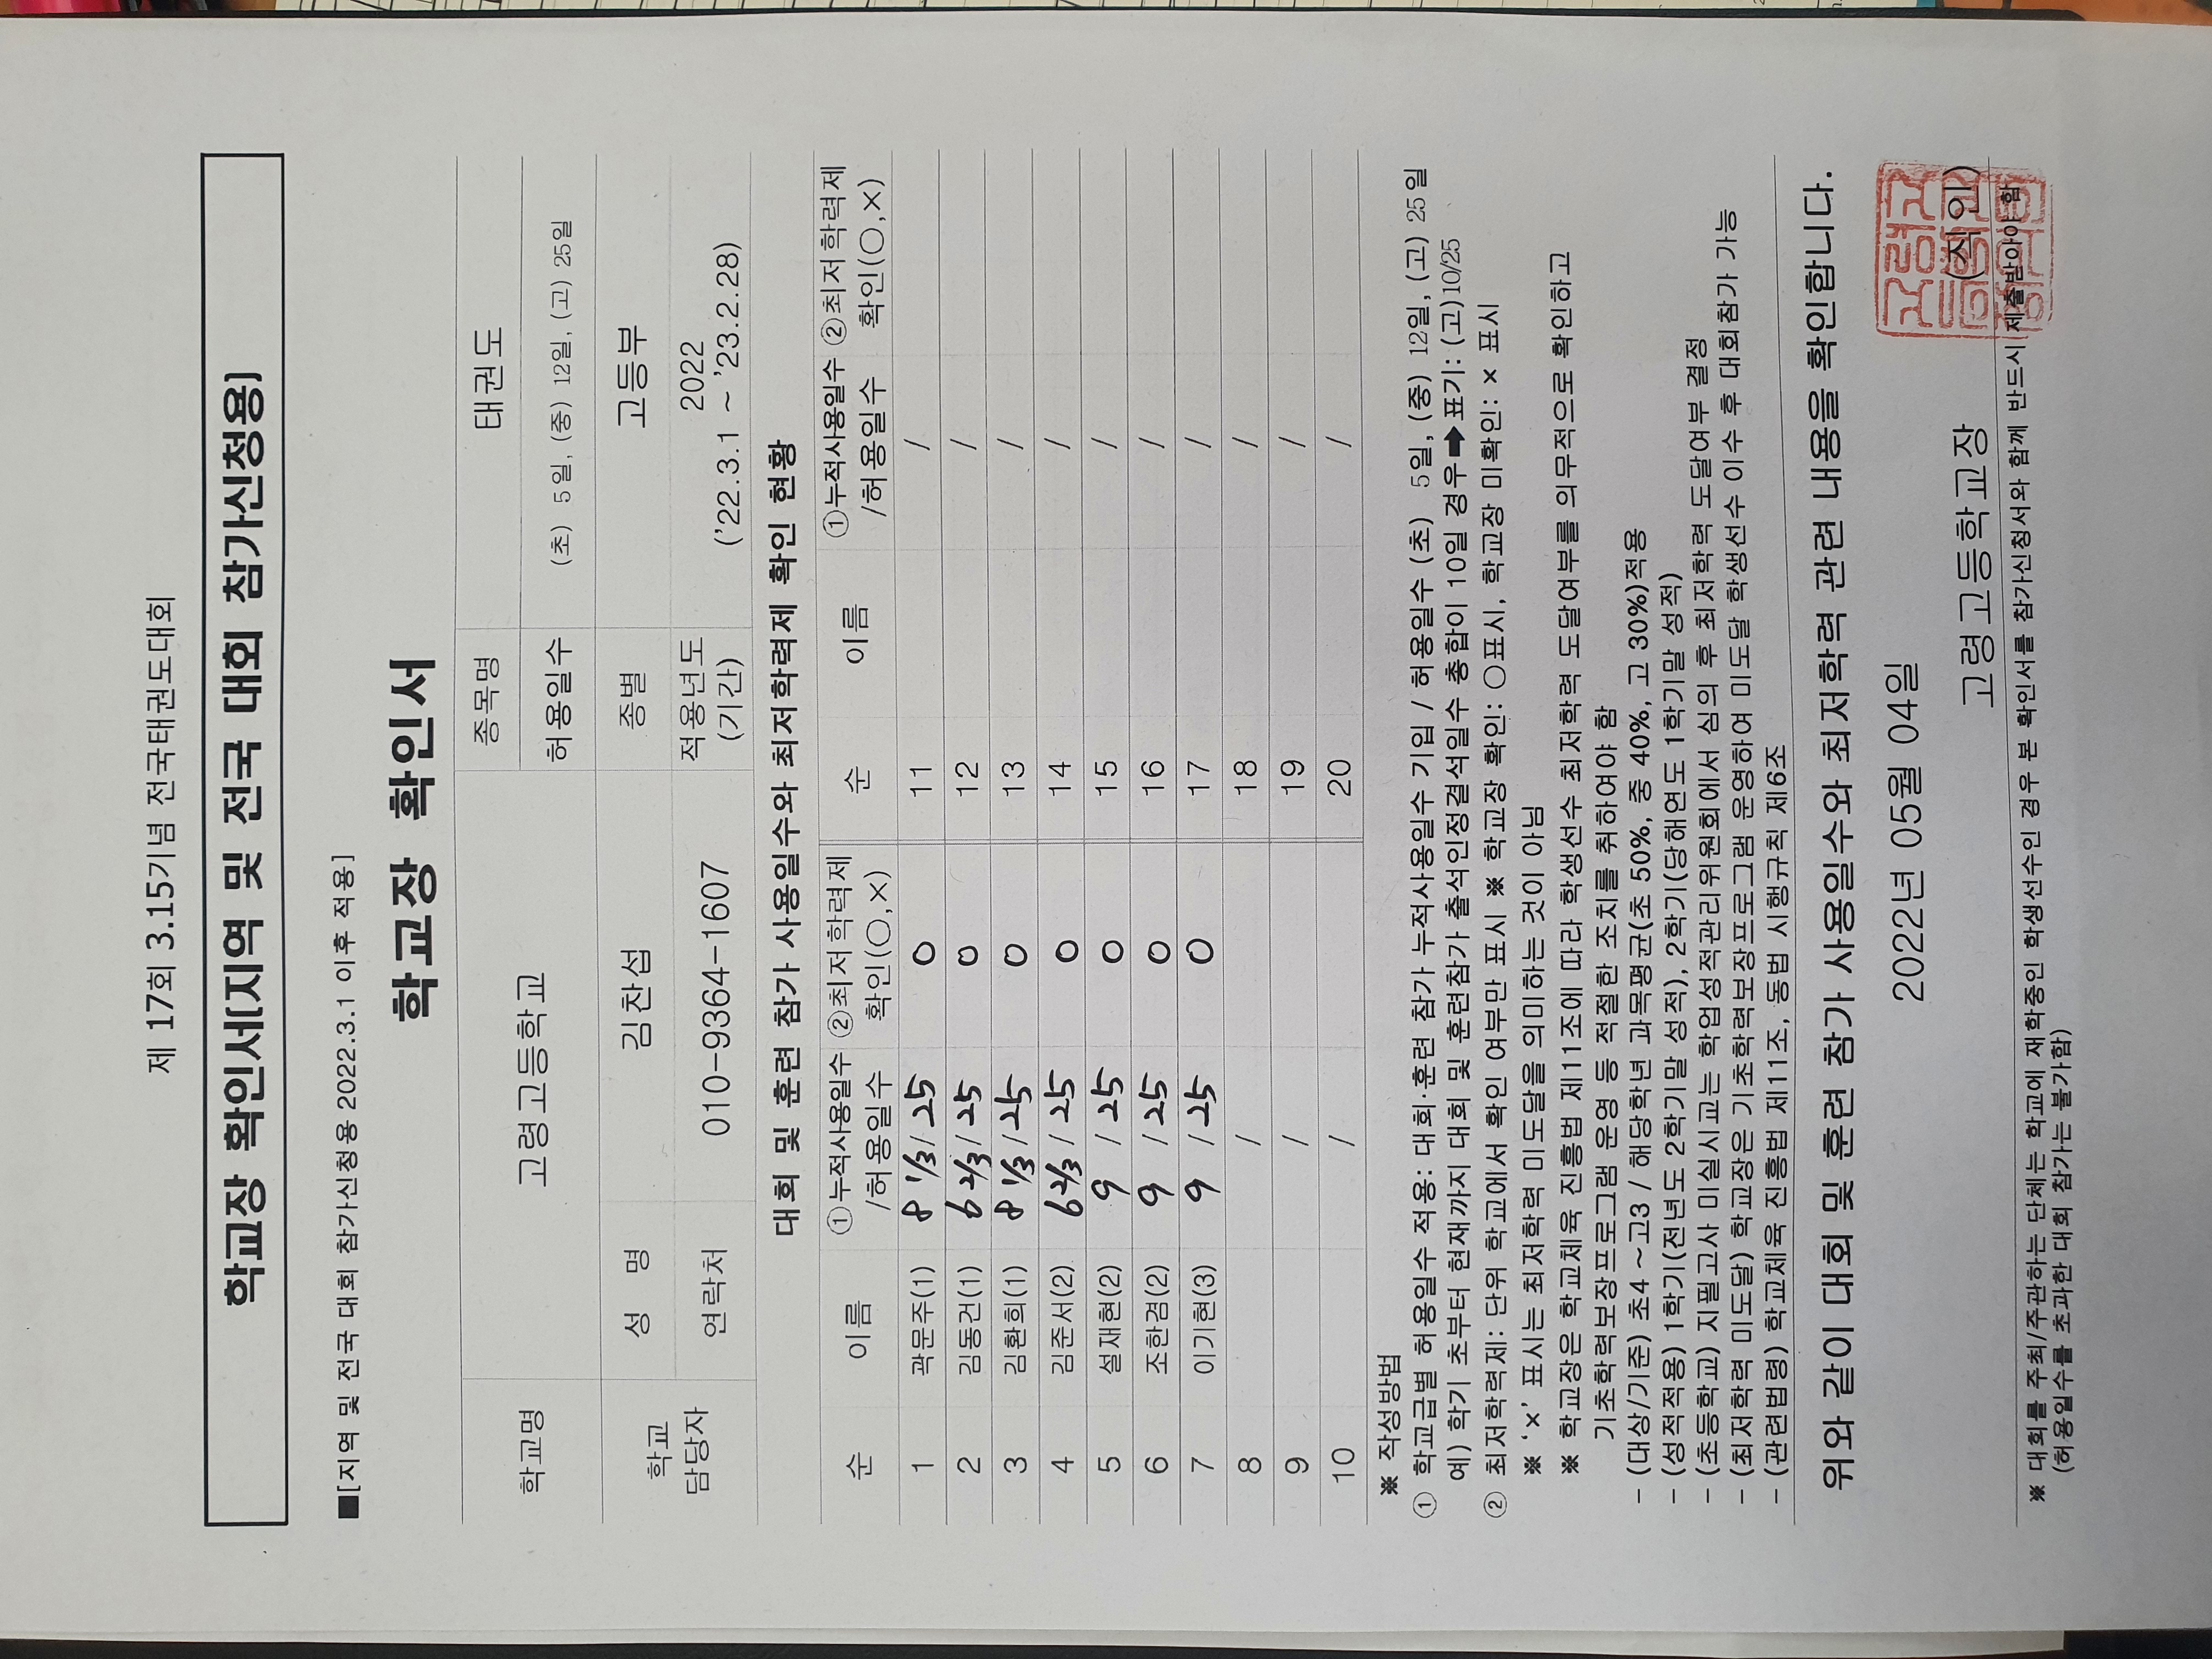 제 17회 3.15기념 전국태권도대회
학교장 확인서[지역 및 전국 대회 참가신청용]
■[지역 및 전국 대회 참가신청용 2022.3.1 이후 적용]
학교장 확인서
학교명 고령고등학교 종목명 태권도
허용일수 (초) 5일, (중) 12일, (고) 25일
학교 담당자 성 명 김찬섭 종별 고등부
연락처 010-9364-1607 적용년도 (기간) 2022 ('22.3.1 ~ '23.2.28)
대회 및 훈련 참가 사용일수와 최저학력제 확인 현황
순 이름 ①누적사용일수 /허용일수 ②최저학력제 확인(○,×) 순 이름 ①누적사용일수 /허용일수 ②최저학력제 확인(○,×)
1 곽문주(1) 8 1/3 / 25 ○ 11 /
2 김동건(1) 6 2/3 / 25 ○ 12 /
3 김환희(1) 8 1/3 / 25 ○ 13 /
4 김준서(2) 6 2/3 / 25 ○ 14 /
5 설재현(2) 9 / 25 ○ 15 /
6 조한겸(2) 9 / 25 ○ 16 /
7 이기현(3) 9 / 25 ○ 17 /
8 / 18 /
9 / 19 /
10 / 20 /
※ 작성방법
① 학교급별 허용일수 적용: 대회·훈련 참가 누적사용일수 기입 / 허용일수 (초) 5일, (중) 12일, (고) 25일
예) 학기 초부터 현재까지 대회 및 훈련참가 출석인정결석일수 총합이 10일 경우 ➡ 표기: (고)10/25
② 최저학력제: 단위 학교에서 확인 여부만 표시 ※ 학교장 확인: ○표시, 학교장 미확인: × 표시
※ '×' 표시는 최저학력 미도달을 의미하는 것이 아님
※ 학교장은 학교체육 진흥법 제11조에 따라 학생선수 최저학력 도달여부를 의무적으로 확인하고
기초학력보장프로그램 운영 등 적절한 조치를 취하여야 함
- (대상/기준) 초4 ~고3 / 해당학년 과목평균(초 50%, 중 40%, 고 30%)적용
- (성적적용) 1학기(전년도 2학기말 성적), 2학기(당해연도 1학기말 성적)
- (초등학교) 지필고사 미실시교는 학업성적관리위원회에서 심의 후 최저학력 도달여부 결정
- (최저학력 미도달) 학교장은 기초학력보장프로그램 운영하여 미도달 학생선수 이수 후 대회참가 가능
- (관련법령) 학교체육 진흥법 제11조, 동법 시행규칙 제6조
위와 같이 대회 및 훈련 참가 사용일수와 최저학력 관련 내용을 확인합니다.
2022년 05월 04일
고령고등학교장 (직인)
※ 대회를 주최/주관하는 단체는 학교에 재학중인 학생선수인 경우 본 확인서를 참가신청서와 함께 반드시 제출받아야 함
(허용일수를 초과한 대회 참가는 불가함)